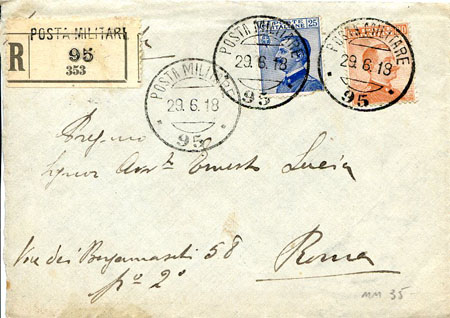 R
POSTA MILITARE
95
353
POSTA MILITARE
29.6.18
95
POSTA MILITARE
29.6.18
95
POSTA MILITARE
29.6.18
95
25
Pregmo
Signor Avvto Ernesto Lucia
Via dei Bergamaschi 58
po 2o
Roma
MM 35